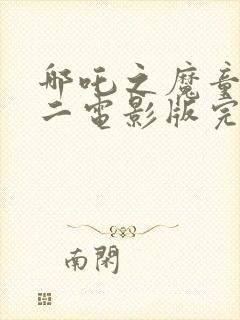 哪吒之魔童
二电影版完
南闲